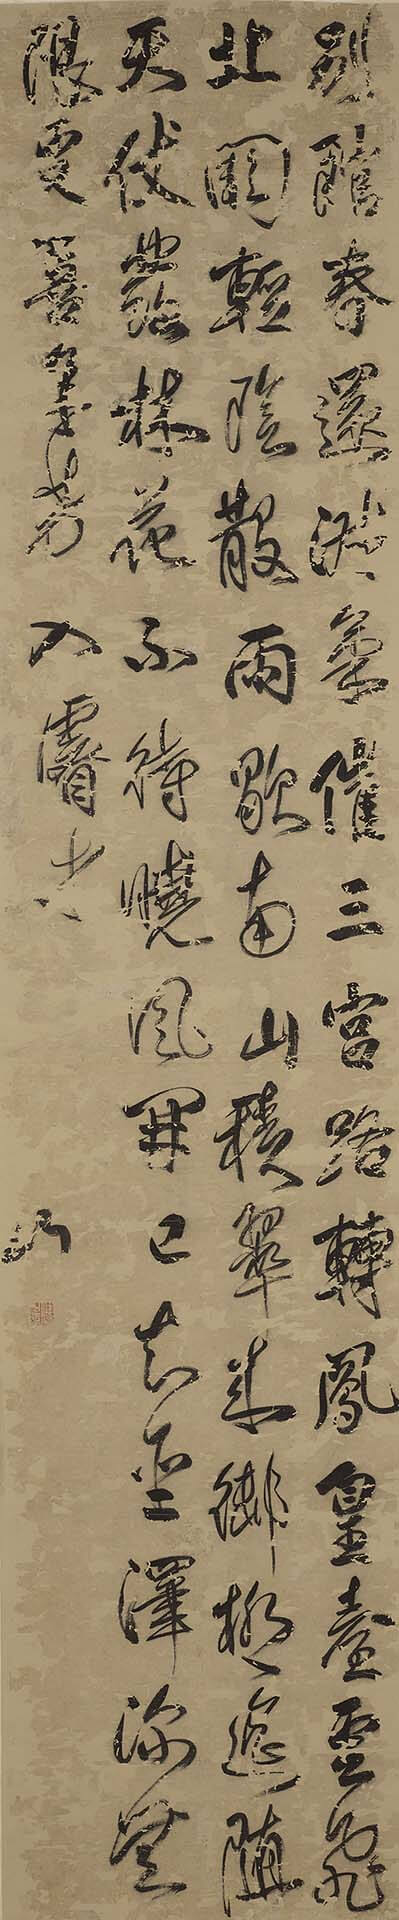 別館春還淑氣催三宮路轉鳳皇臺雲飛
北闕輕陰散雨歇南山積翠來御柳遙隨
天仗發林花不待曉風開已知聖澤深無
限更喜年芳入濬才
山